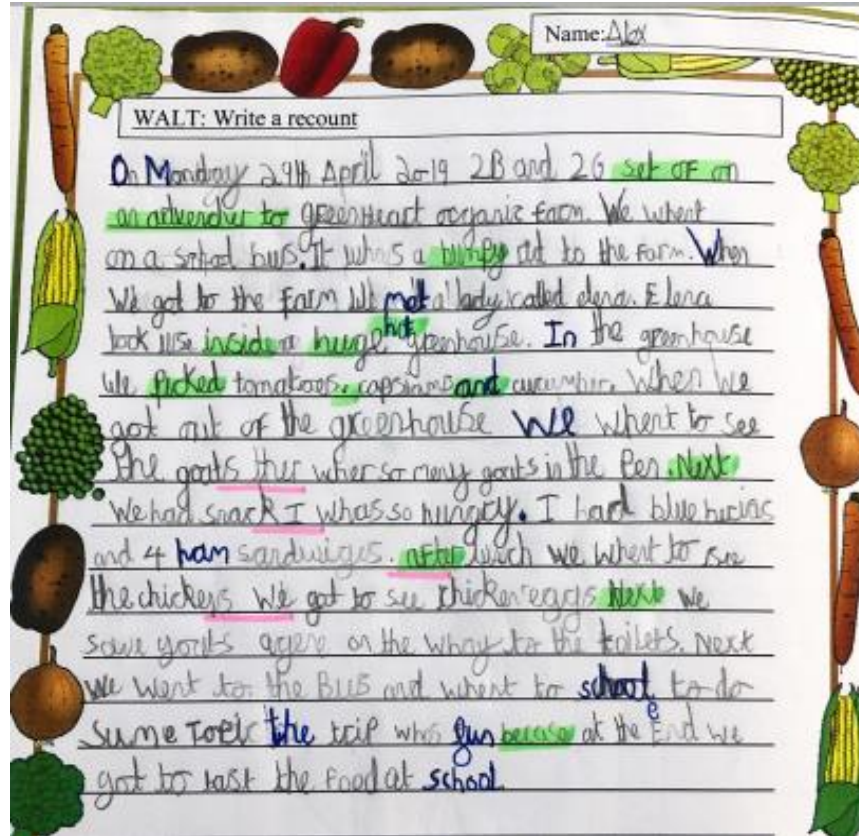 Name: Alex
WALT: Write a recount
On Monday 29th April 2019 2B and 2G set of on
an advencher to greenheart organic farm. We whent
on a school bus. It whos a bumpy rid to the farm. When
We got to the farm We met a lady called elena. Elena
took use inside a huge hot greenhouse. In the greenhouse
We picked tomatoes, capsicums and cucumber. When we
got out of the greenhouse We whent to see
the goats ther wher so meny goats in the Pen. Next
We had snack I whas so hungry. I had blue burins
and 4 ham sandwiges. after lunch we whent to see
the chickens We got to see chicken eggs Next We
sawe goats agene on the whay to the toilets. Next
We went to the Bus and whent to school to do
sume Topic the trip whos fun becase at the end we
got to tast the food at school